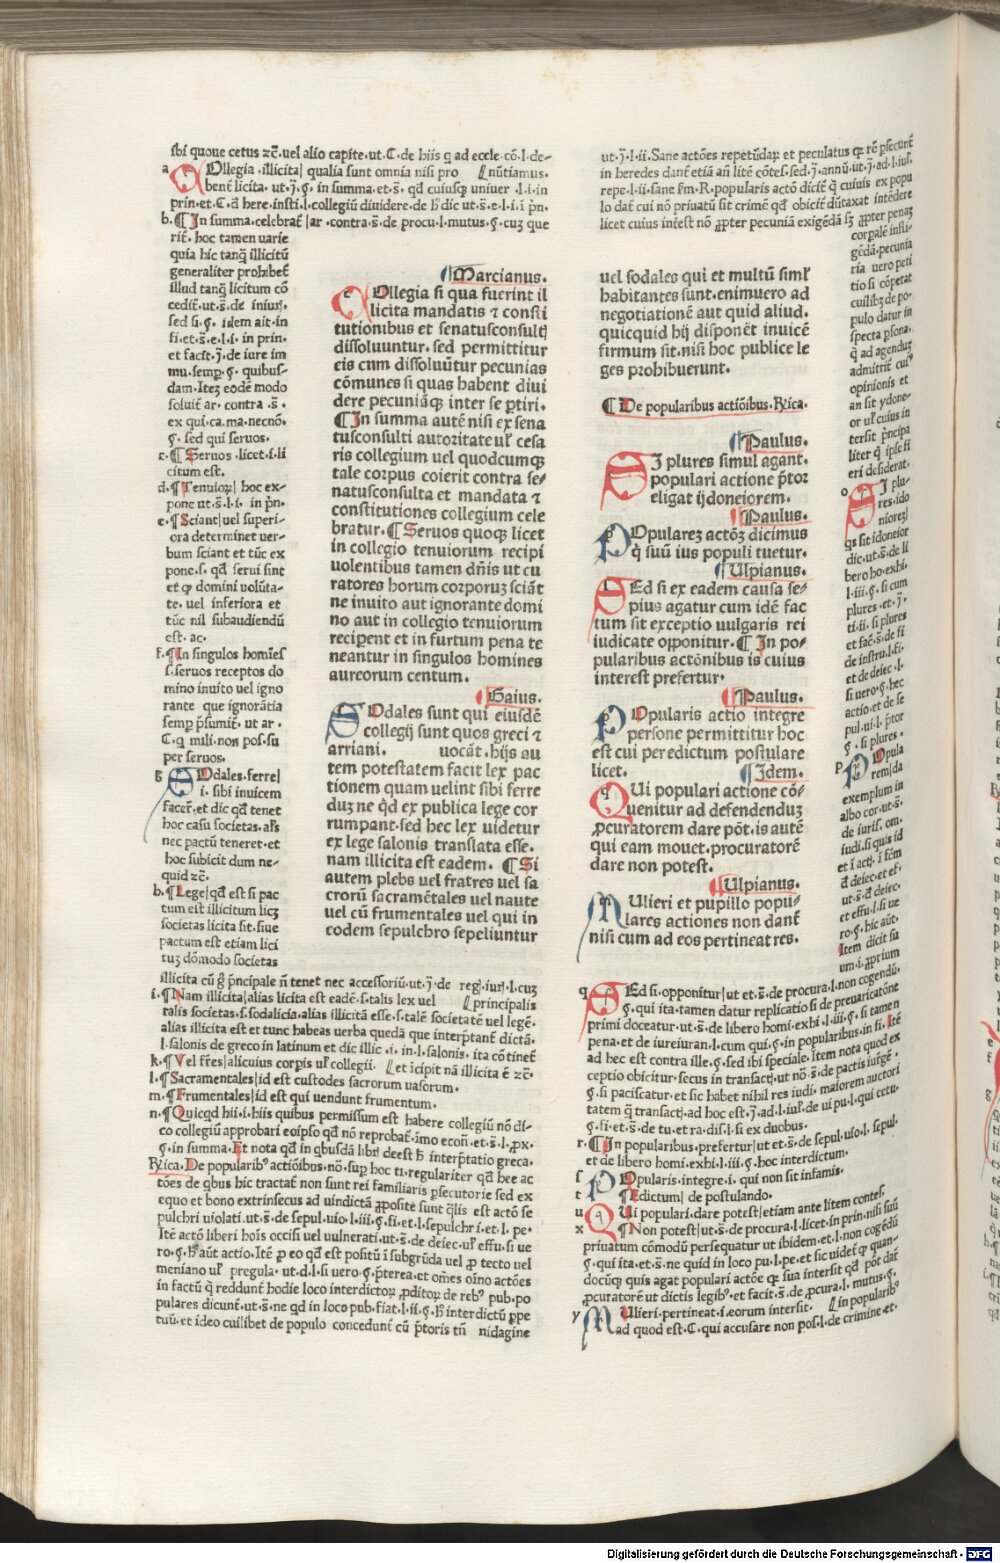 sbi quoue cetus zc̄. uel alio capite. ut. C. de hiis q ad eccle. cō. l. de-
a Ollegia illicita| qualia sunt omnia nisi pro nūtiamus.
benē licita. ut. j̄. §. in summa. et. s̄. qd̄ cuiusq; uniuer. l. i. in
prin. et. C. d̄ here. insti. l. collegiū diuidere. de h̄ dic ut. s̄. e. l. i. ī p̄n.
b. ¶ In summa celebrat̄ |ar. contra. s̄. de procu. l. mutus. §. cuz que
rit̄. hoc tamen uarie
quia hic tanq̄ illicitū
generaliter prohibet̄
illud tanq̄ licitum cō
cedit̄. ut. s̄. de iniur̄.
sed si. §. idem ait. in
fi. et. s̄. e. l. i. in prin.
et facit. j̄. de iure im
mu. semp̱. §. quibus-
dam. Itez eodē modo
soluit̄ ar. contra. s̄.
ex qui. ca. ma. necnō.
§. sed qui seruos.
c. ¶ Seruos. licet. i. li
citum est.
d. ¶ Tenuiorȝ| hoc ex-
pone ut. s̄. l. i. in p̄n.
e. ¶ Sciant| uel superi-
ora determinet uer-
bum sciant et tūc ex
pone. s. qd̄ serui sint
et qȝ domini volūta-
te. uel inferiora et
tūc nil subaudiendū
est. ac.
f. ¶ In singulos homīes
s. seruos receptos do
mino inuito uel igno
rante que ignorātia
semp̱ p̄sumit̄. ut ar.
C. q mili. non pos. su
per seruos.
g Odales. ferre|
i. sibi inuicem
facer̄. et dic qd̄ tenet
hoc casu societas. al̄s
nec pactū teneret. et
hoc subicit dum ne-
quid zc̄.
h. ¶ Lege| qd̄ est si pac
tum est illicitum licȝ
societas licita sit. siue
pactum est etiam lici
tuz dōmodo societas
illicita cū g̊ p̄ncipale n̄ tenet nec accessoriū. ut. j̄. de reg. iur̄. l. cuȝ
i. ¶ Nam illicita| alias licita est eadē. s. talis lex uel principalis
talis societas. s. sodalicia. alias illicitā esse. s. talē societatē uel legē.
alias illicita est et tunc habeas uerba quedā que interp̄tant̄ dictā.
l. salonis de greco in latinum et dic illic. i. in. l. salonis. ita cōtinet̄
k. ¶ Vel fr̄es| alicuius corpis ul̄ collegii. et īcipit nā illicita ē zc̄.
l. ¶ Sacramentales| id est custodes sacrorum uasorum.
m. ¶ Frumentales| id est qui uendunt frumentum.
n. ¶ Quicqd hii. i. hiis quibus permissum est habere collegiū nō di-
co collegiū approbari eoipso qd̄ nō reprobat̄. imo econ̄. et. s̄. l. ꝓx.
§. in summa. Et nota qd̄ in qbusdā libr̄ deest h̄ interp̄tatio greca.
Rꝛica. De popularib⁹ actiōibus. nō. sup̱ hoc ti. regulariter qd̄ hee ac
tōes de qbus hic tractat̄ non sunt rei familiaris p̱secutorie sed ex
equo et bono extrinsecus ad uindictā ꝓposite sunt q̄lis est actō se
pulchri uiolati. ut. s̄. de sepul. uio. l. iii. §. fi. et. l. sepulchri. et. l. pe.
Itē actō liberi hoīs occisi uel uulnerati. ut. s̄. de deiec. ul̄ effu. si ue
ro. §. h̄ aūt actio. Itē ꝓ eo qd̄ est positū ī subgrūda uel ꝓ tecto uel
meniano ul̄ pregula. ut. d. l. si uero. §. p̄terea. et om̄es oīno actōes
in factū q̄ reddunt̄ hodie loco interdictorȝ ꝓditorȝ de reb⁹ pub. po
pulares dicunt̄. ut. s̄. ne qd in loco pub. fiat. l. ii. §. h̄ interdictū ꝓpe
tuū. et ideo cuilibet de populo concedunt̄ cū p̄toris tn̄ nidagine
¶ Marcianus.
c Ollegia si qua fuerint il
licita mandatis ⁊ consti
tutionibus et senatusconsultȷ
dissoluuntur. sed permittitur
eis cum dissoluūtur pecunias
cōmunes si quas habent diui
dere pecuniāqȝ inter se p̱tiri.
¶ In summa autē nisi ex sena
tusconsulti autoritate ul̄ cesa
ris collegium uel quodcumqȝ
tale corpus coierit contra se-
natusconsulta et mandata ⁊
constitutiones collegium cele
bratur. ¶ Seruos quoqȝ licet
in collegio tenuiorum recipi
uolentibus tamen dn̄is ut cu
ratores horum corporuȝ sciāt
ne inuito aut ignorante domi
no aut in collegio tenuiorum
recipient et in furtum pena te
neantur in singulos homines
aureorum centum.
¶ Gaius.
Odales sunt qui eiusdē
collegij sunt quos greci ⁊
arriani. uocāt. hijs au
tem potestatem facit lex pac
tionem quam uelint sibi ferre
duȝ ne qd̄ ex publica lege cor
rumpant. sed hec lex uidetur
ex lege salonis translata esse.
nam illicita est eadem. ¶ Si
autem plebs uel fratres uel sa
crorū sacramētales uel naute
uel cū frumentales uel qui in
eodem sepulchro sepeliuntur
ut. j̄. l. ii. Sane actōes repetūdaȝ et peculatus qȝ rē p̱secunt̄
in heredes dant̄ etiā an̄ litē cōtes. sed. j̄. annū. ut. j̄. ad. l. iul̄.
repe. l. ii. sane sm̄. R. popularis actō dicit̄ q̄ cuiuis ex popu
lo dat̄ cui nō priuatū sit crimē qd̄ obicit̄ dūtaxat intēdere
licet cuius inter̄est nō ꝓpter pecuniā exigēdā sȝ ꝓpter penaȝ
corpalē infli-
gēdā. pecunia
ria uero peti
tio si cōpetat
cuilibȝ de po-
pulo datur in
specta p̱sona.
q̄ ad agenduȝ
admittit̄ cui⁹
opinionis et
an sit ydone-
or ul̄ cuius in
tersit p̄ncipa
liter q̄ ip̄se fi
eri desiderat.
uel sodales qui et multū siml̄
habitantes sunt. enimuero ad
negotiationē aut quid aliud.
quicquid hij disponēt inuicē
firmum sit. nisi hoc publice le
ges prohibuerunt.
¶ De popularibus actiōibus. Rꝛica.
¶ Paulus.
I plures simul agant.
populari actione p̄tor
eligat ijdoneiorem.
¶ Paulus.
p Opularez actōȝ dicimus
q̄ suū ius populi tuetur.
¶ Ulpianus.
Ed si ex eadem causa se-
pius agatur cum idē fac
tum sit exceptio uulgaris rei
iudicate opponitur. ¶ In po-
pularibus actōnibus is cuius
interest prefertur.
¶ Paulus.
p Opularis actio integre
persone permittitur hoc
est cui per edictum postulare
licet. ¶ Idem.
q Ui populari actione cō-
uenitur ad defendenduȝ
ꝓcuratorem dare pōt. is autē
qui eam mouet. procuratorē
dare non potest.
¶ Ulpianus.
m Ulieri et pupillo popu-
lares actiones non dant̄
nisi cum ad eos pertineat res.
o I plu-
res. ido
niorez|
qs sit idoneior
dic. ut. s̄. de li
bero ho. exhi.
l. iii. §. si cum
plures. et. j̄.
ti. ii. si plures
et fac̄. s̄. de fi
de instru. l. fi.
et de deiec. l.
si uero. §. hec
actio. et de se
pul. ui. l. p̄tor
§. si plures.
p Opula
rem| da
exemplum in
albo cor. ut. s̄.
de iuris. om.
iudi. si quis id
et ī actȷ. ī fc̄m
d̄ deiec. et ef.
ut. s̄. d̄ deiec.
et effu. l. si ue
ro. §. hic aūt.
Item dicit su
um. i. ꝓprium
q Ed si. opponitur| ut et. s̄. de procura. l. non cogendū.
§. qui ita. tamen datur replicatio si de preuaricatōne
primi doceatur. ut. s̄. de libero homi. exhi. l. iii. §. si tamen
pena. et de iureiuran. l. cum qui. §. in popularibus in fi. Itē
ad hec est contra ille. §. sed ibi speciale. Item nota quod ex
ceptio obicitur. secus in transactȷ. ut nō. s̄. de pactis iurgē.
§. si paciscatur. et sic habet nihil res iudi. maiorem auctori
tatem q̄ transactȷ. ad hoc est. j̄. ad. l. iul̄. de ui pu. l. qui cetu.
§. fi. et. s̄. de tu. et ra. dis. l. si ex duobus.
r. ¶ In popularibus. prefertur| ut et. s̄. de sepul. uio. l. sepul.
et de libero homi. exhi. l. iii. §. hoc interdictum.
s Opularis. integre. i. qui non sit infamis.
t ¶ Edictum| de postulando.
u Ui populari. dare potest| etiam ante litem contes.
x ¶ Non potest| ut. s̄. de procura. l. licet. in prin. nisi suū
priuatum cōmodū persequatur ut ibidem. et. l. non cogēdū
§. qui ita. et. s̄. ne quid in loco pu. l. pe. et sic uidet̄ qȝ quan-
docūqȝ quis agat populari actōe qȝ sua intersit qd̄ pōt dat̄
ꝓcuratorē ut dictis legib⁹. et facit. s̄. de ꝓcura. l. mutus. §.
y Ulieri. pertineat. i. eorum intersit. in popularib⁹
ad quod est. C. qui accusare non pos. l. de crimine. et.
Digitalisierung gefördert durch die Deutsche Forschungsgemeinschaft - DFG